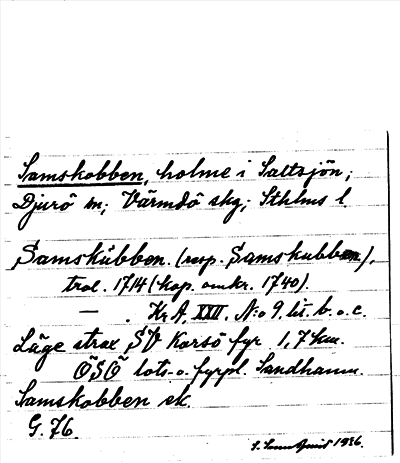 Samskobben, holme i Saltsjön;
Djurö sn; Värmdö skg; Sthlms l.
Samskübben. (resp. Samskubben),
trol. 1714 (kop. omkr. 1740).
— . Kr. A. XXIII. N:o 9. lit. b. o. c.
Läge strax SV Korsö fyr 1,7 km.
ÖSÖ lots- o. fyrpl. Sandhamn.
Samskobben ek.
G. 76.
1936.